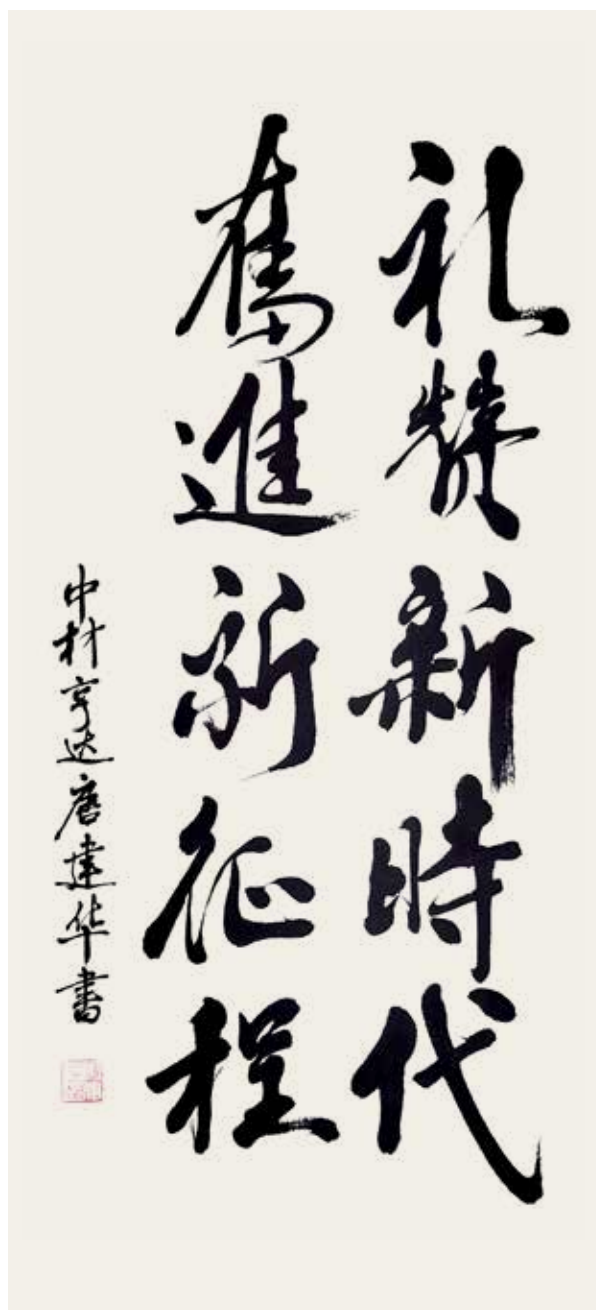 礼赞新時代
奮進新征程
中材亨达唐建华書